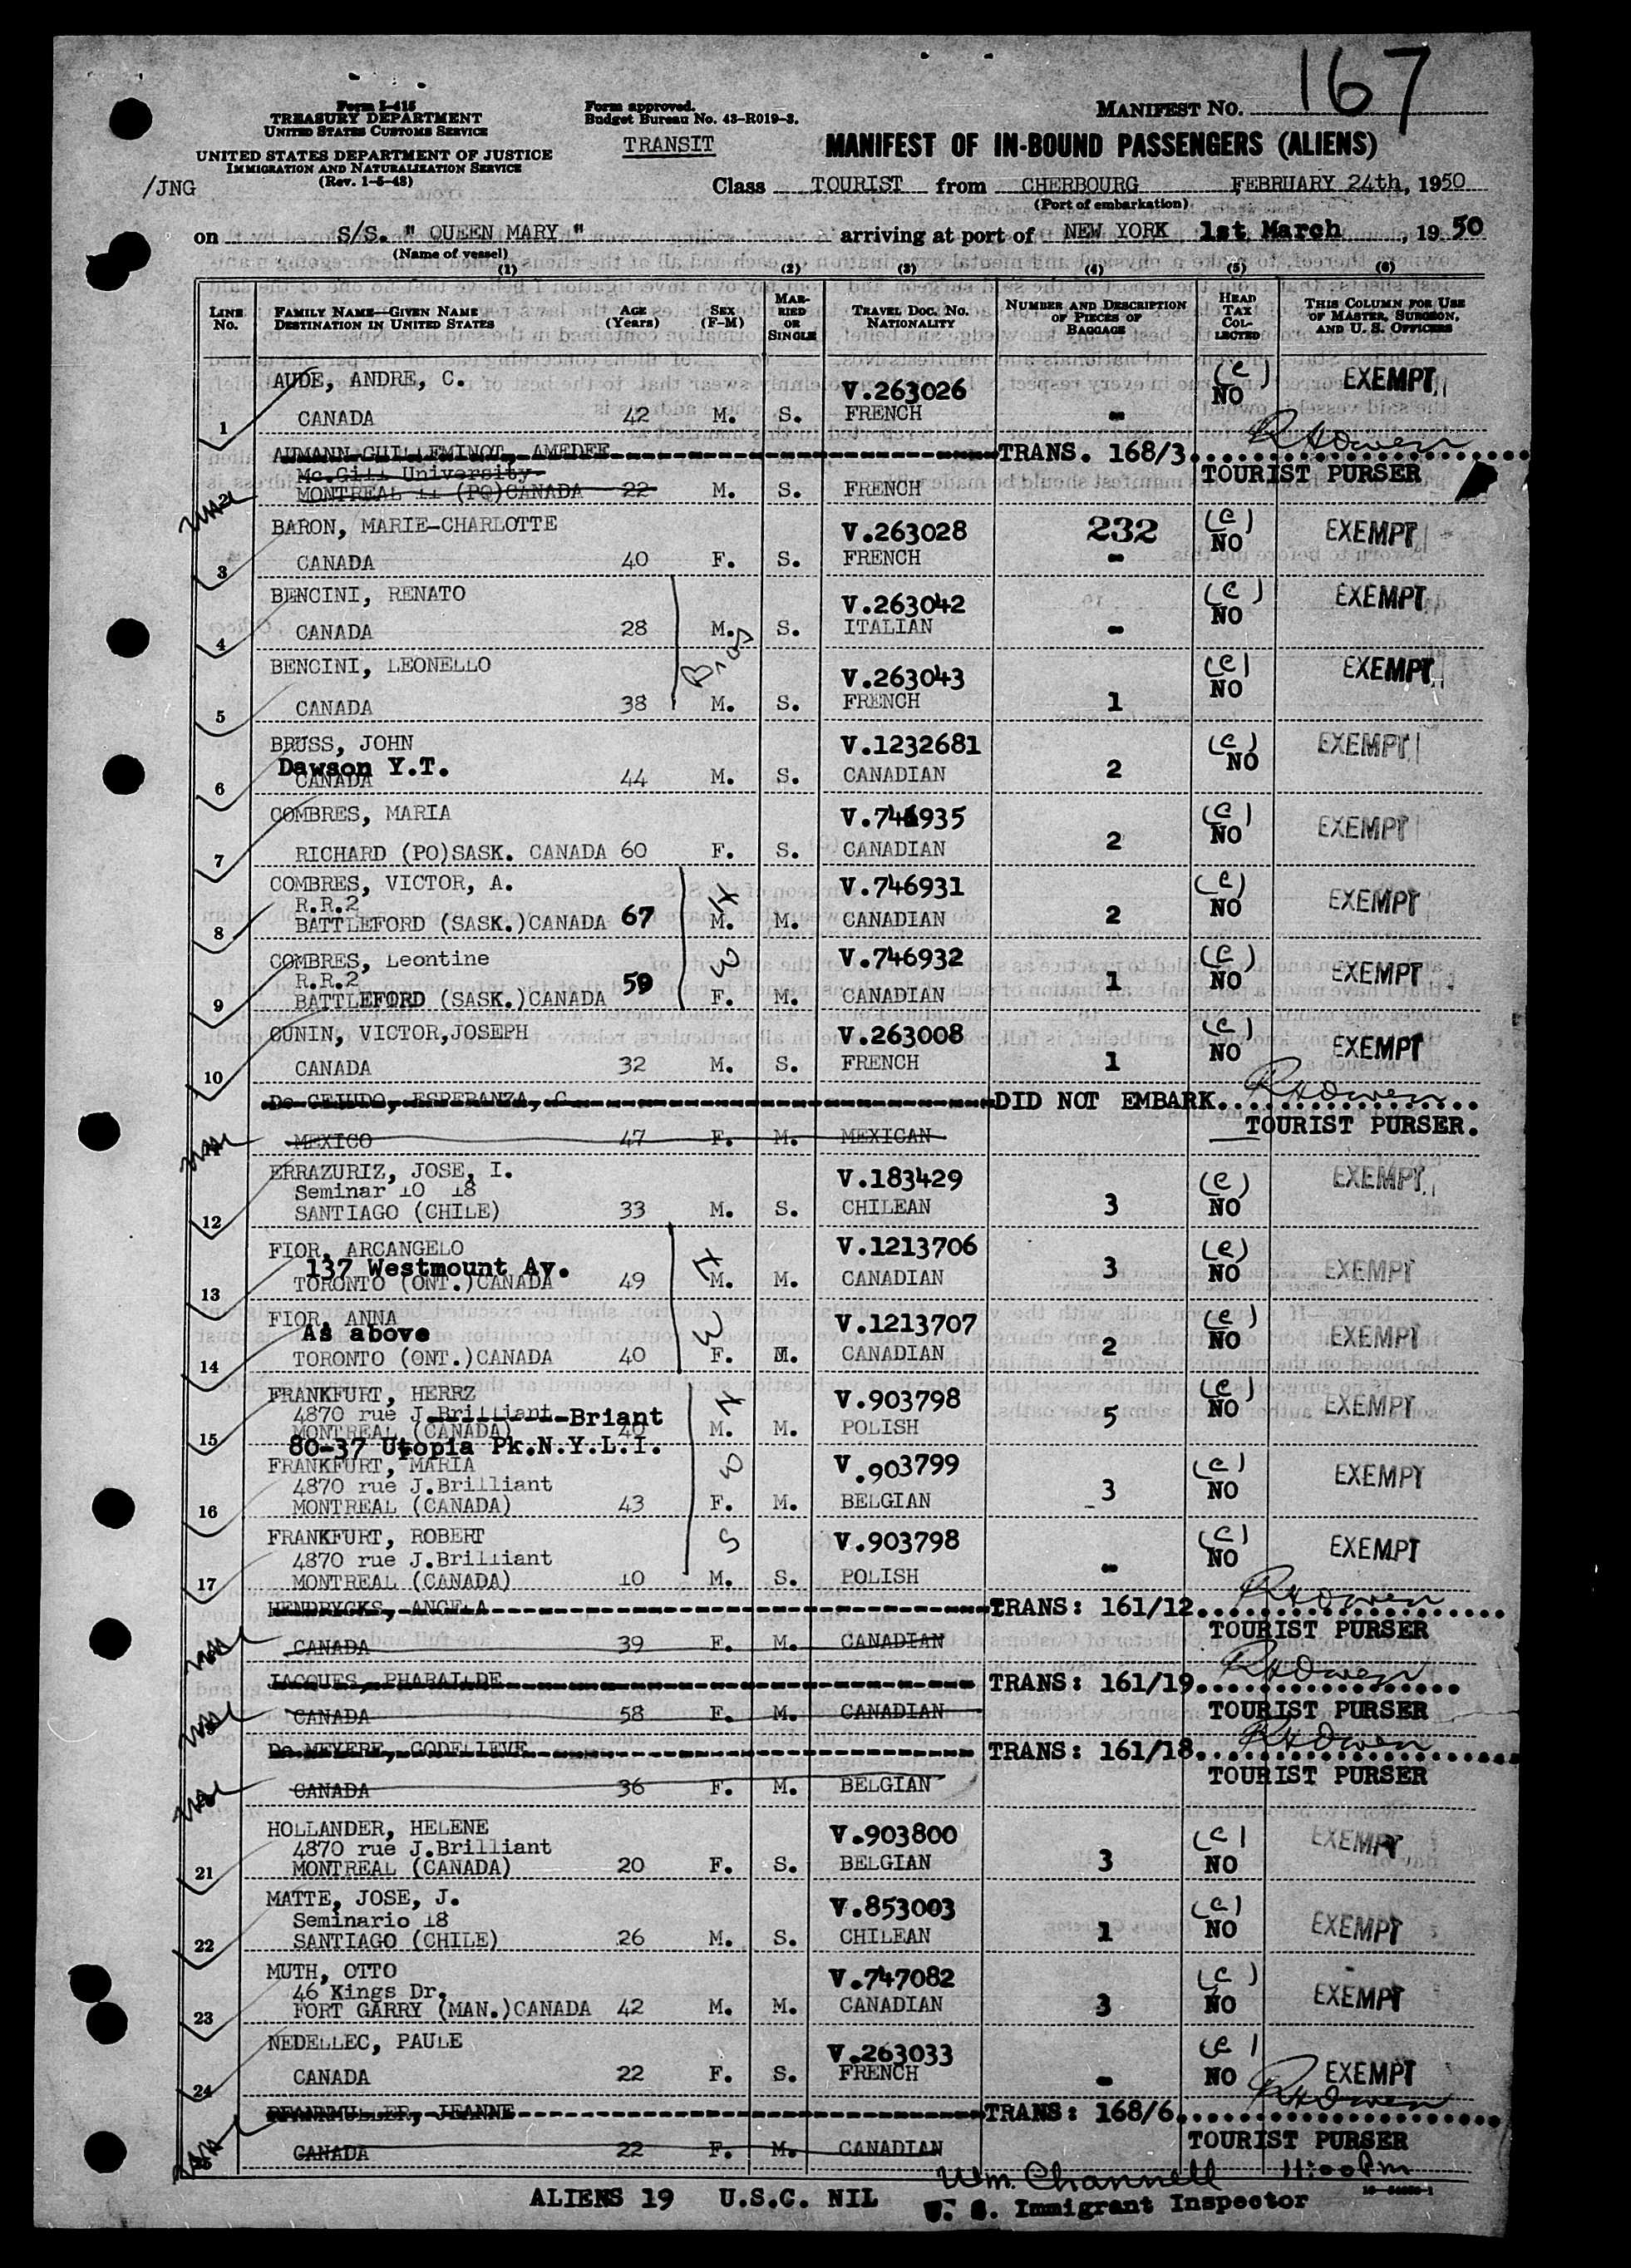 167
Form I-415
TREASURY DEPARTMENT
UNITED STATES CUSTOMS SERVICE
Form approved.
Budget Bureau No. 43-R019-3.
MANIFEST NO.
TRANSIT
MANIFEST OF IN-BOUND PASSENGERS (ALIENS)
UNITED STATES DEPARTMENT OF JUSTICE
IMMIGRATION AND NATURALIZATION SERVICE
(Rev. 1-5-48)
/JNG
Class TOURIST from CHERBOURG FEBRUARY 24th, 1950
(Port of embarkation)
on S/S. " QUEEN MARY " arriving at port of NEW YORK 1st March, 19 50
(Name of vessel)
(1) (2) (3) (4) (5) (6)
LINE No. FAMILY NAME—GIVEN NAME DESTINATION IN UNITED STATES AGE (Years) SEX (F-M) MARRIED OR SINGLE TRAVEL DOC. NO. NATIONALITY NUMBER AND DESCRIPTION OF PIECES OF BAGGAGE HEAD TAX COLLECTED THIS COLUMN FOR USE OF MASTER, SURGEON, AND U. S. OFFICERS
AUDE, ANDRE, C. V.263026 (e) NO EXEMPT
1 CANADA 42 M. S. FRENCH -
AUMANN GUILLEMINOT, AMEDEE TRANS. 168/3 RHOwen
Mc.Gill University TOURIST PURSER
2 MONTREAL 11 (PQ)CANADA 22 M. S. FRENCH
BARON, MARIE-CHARLOTTE V.263028 232 (e) NO EXEMPT
3 CANADA 40 F. S. FRENCH -
BENCINI, RENATO V.263042 (e) NO EXEMPT
4 CANADA 28 M. S. ITALIAN -
Bros
BENCINI, LEONELLO V.263043 (e) NO EXEMPT
5 CANADA 38 M. S. FRENCH 1
BRUSS, JOHN V.1232681 (e) NO EXEMPT
Dawson Y.T.
6 CANADA 44 M. S. CANADIAN 2
COMBRES, MARIA (e) NO EXEMPT
7 RICHARD (PO)SASK. CANADA 60 F. S. CANADIAN 2
COMBRES, VICTOR, A. H V.746931 (e) NO EXEMPT
R.R.2
8 BATTLEFORD (SASK.)CANADA 67 M. M. CANADIAN 2
COMBRES, Leontine W V.746932 (e) NO EXEMPT
R.R.2
9 BATTLEFORD (SASK.)CANADA 59 F. M. CANADIAN 1
CUNIN, VICTOR,JOSEPH V.263008 (e) NO EXEMPT
10 CANADA 32 M. S. FRENCH 1
De CEJUDO, ESPERANZA, C. DID NOT EMBARK RHOwen
TOURIST PURSER.
MEXICO 47 F. M. MEXICAN
ERRAZURIZ, JOSE, I. V.183429 (e) NO EXEMPT
Seminar 10 18
12 SANTIAGO (CHILE) 33 M. S. CHILEAN 3
FIOR, ARCANGELO H V.1213706 (e) NO EXEMPT
137 Westmount Av.
13 TORONTO (ONT.)CANADA 49 M. M. CANADIAN 3
FIOR, ANNA W V.1213707 (e) NO EXEMPT
As above
14 TORONTO (ONT.)CANADA 40 F. M. CANADIAN 2
FRANKFURT, HERRZ H V.903798 (e) NO EXEMPT
4870 rue J.Brilliant-Briant
15 MONTREAL (CANADA) 40 M. M. POLISH 5
80-37 Utopia Pk.N.Y.L.I.
FRANKFURT, MARIA W V.903799 (e) NO EXEMPT
4870 rue J.Brilliant
16 MONTREAL (CANADA) 43 F. M. BELGIAN 3
FRANKFURT, ROBERT S V.903798 (e) NO EXEMPT
4870 rue J.Brilliant
17 MONTREAL (CANADA) 10 M. S. POLISH -
HENDRYCKS, ANGELA TRANS: 161/12 RHOwen
TOURIST PURSER
CANADA 39 F. M. CANADIAN
JACQUES, PHARAILDE TRANS: 161/19 RHOwen
TOURIST PURSER
CANADA 58 F. M. CANADIAN
De MEYERE, GODELIEVE TRANS: 161/18 RHOwen
TOURIST PURSER
CANADA 36 F. M. BELGIAN
HOLLANDER, HELENE V.903800 (e) NO EXEMPT
4870 rue J.Brilliant
21 MONTREAL (CANADA) 20 F. S. BELGIAN 3
MATTE, JOSE, J. V.853003 (e) NO EXEMPT
Seminario 18
22 SANTIAGO (CHILE) 26 M. S. CHILEAN 1
MUTH, OTTO V.747082 (e) NO EXEMPT
46 Kings Dr.
23 FORT GARRY (MAN.)CANADA 42 M. M. CANADIAN 3
NEDELLEC, PAULE V.263033 (e) NO EXEMPT
24 CANADA 22 F. S. FRENCH -
PFANNMULLER, JEANNE TRANS: 168/6 RHOwen
TOURIST PURSER
25 CANADA 22 F. M. CANADIAN
Wm. Channell 11:00 Pm
ALIENS 19 U.S.C. NIL U. S. Immigrant Inspector